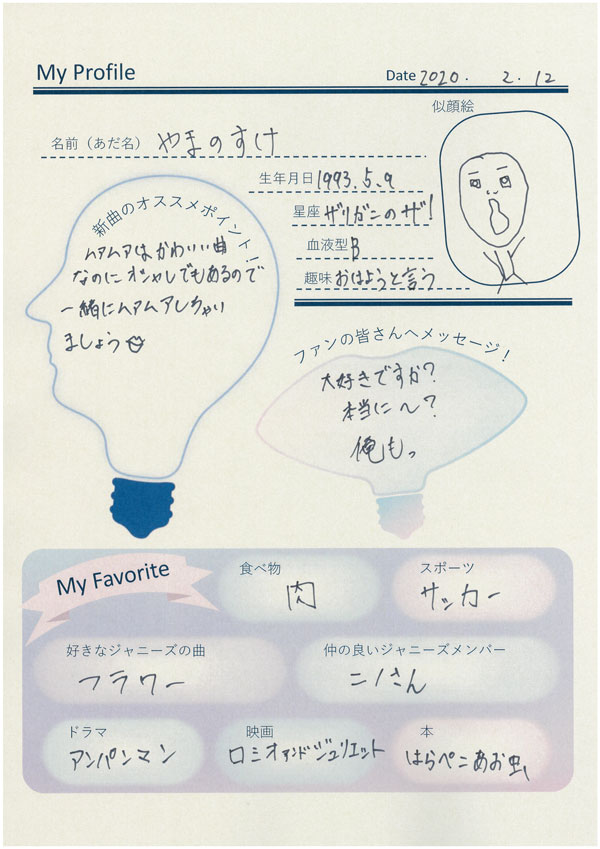 My Profile
Date 2020. 2. 12
似顔絵
名前（あだ名） やまのすけ
生年月日 1993.5.9
星座 ザリガニのザ!
血液型 B
趣味 おはようと言う
新曲のオススメポイント！
ムアムアはかわいい曲
なのにオシャレでもあるので
一緒にムアムアしちゃい
ましょう
ファンの皆さんへメッセージ！
大好きですか?
本当に〜?
俺もっ
My Favorite
食べ物
肉
スポーツ
サッカー
好きなジャニーズの曲
フラワー
仲の良いジャニーズメンバー
ニノさん
ドラマ
アンパンマン
映画
ロミオアンドジュリエット
本
はらぺこあお虫